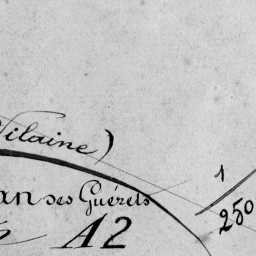 Vilaine)
an des Guérets
1
250
A2